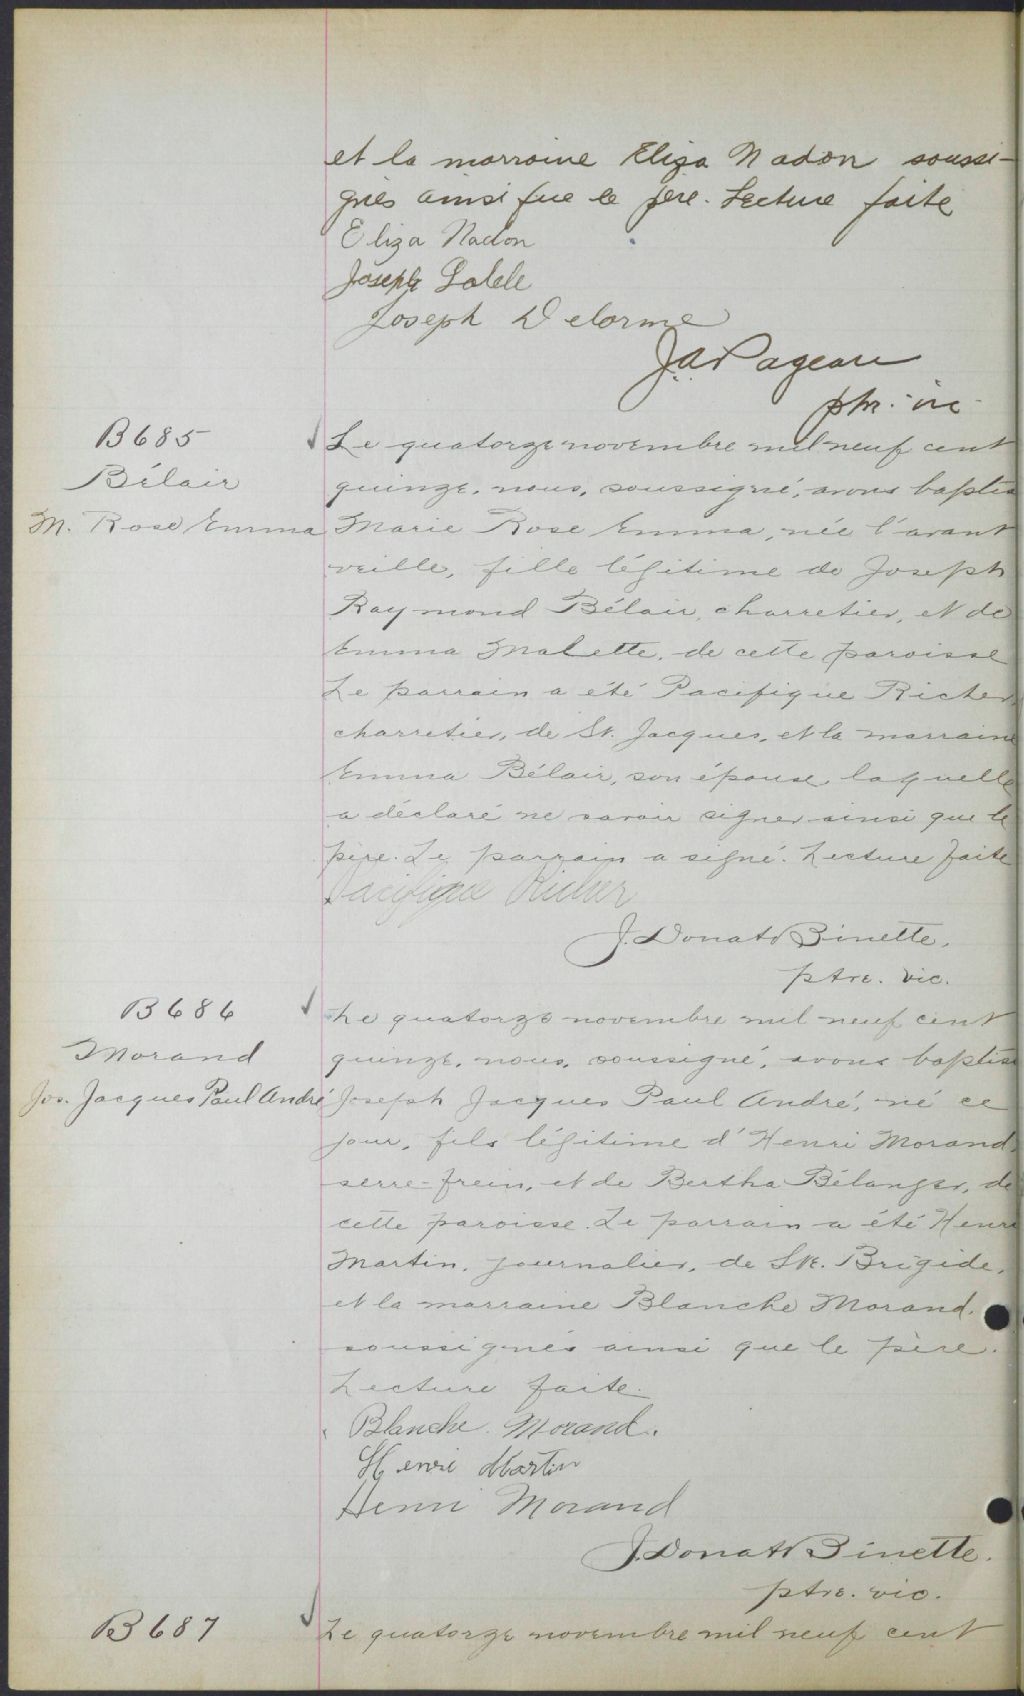 et la marraine Eliza Nadon soussi-
gnés ainsi que le père. Lecture faite
Eliza Nadon
Joseph
Joseph Delorme
J A Pageau
ptr. vic
B685
Bélair
M. Rose Emma
Le quatorze novembre mil neuf cent
quinze, nous, soussigné, avons baptisé
Marie Rose Emma, née l'avant
veille, fille légitime de Joseph
Raymond Bélair, charretier, et de
Emma Malette, de cette paroisse
Le parrain a été Pacifique Richer,
charretier, de St. Jacques, et la marraine
Emma Bélair, son épouse, laquelle
a déclaré ne savoir signer ainsi que le
père. Le parrain a signé. Lecture faite
Pacifique Richer
J. Donat Binette,
ptre. vic.
B686
Morand
Jos. Jacques Paul André
Le quatorze novembre mil neuf cent
quinze, nous, soussigné, avons baptisé
Joseph Jacques Paul André, né ce
jour, fils légitime d'Henri Morand,
serre-frein, et de Bertha Bélanger, de
cette paroisse. Le parrain a été Henri
Martin, journalier, de Ste. Brigide,
et la marraine Blanche Morand,
soussignés ainsi que le père.
Lecture faite.
Blanche Morand.
Henri Martin
Henri Morand
J. Donat Binette.
ptre. vic.
B687
Le quatorze novembre mil neuf cent